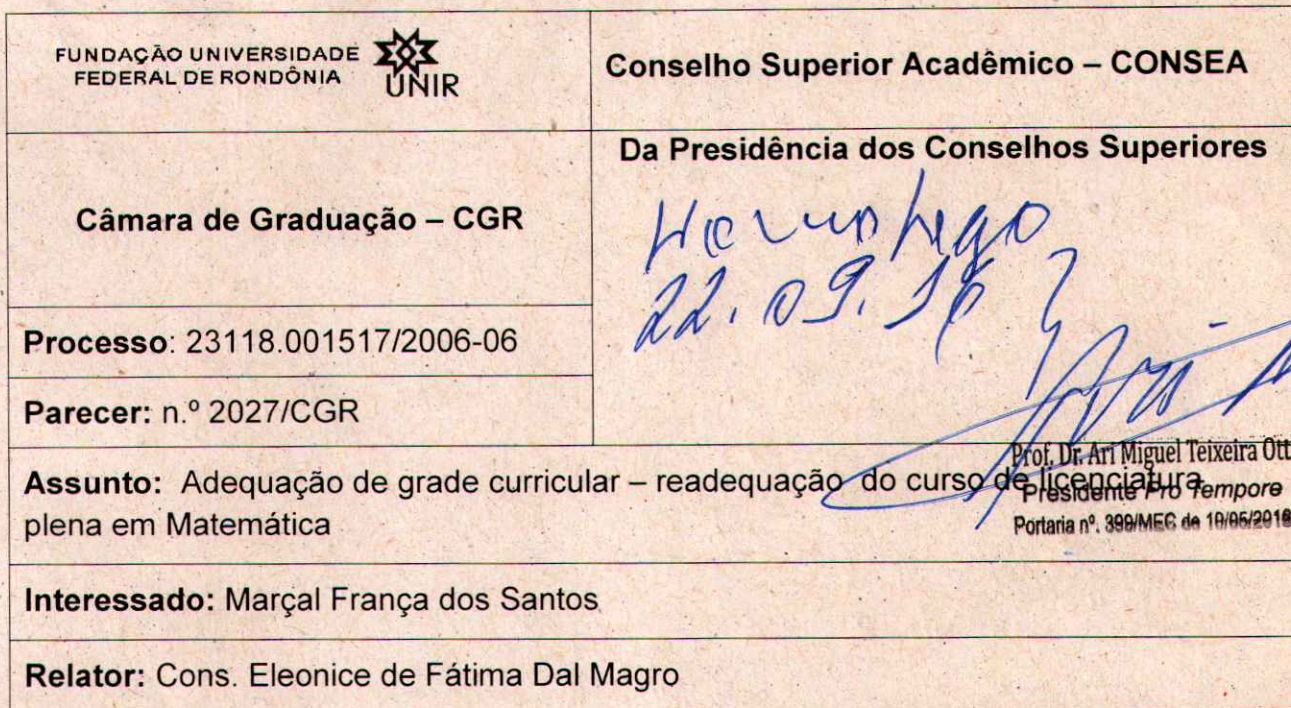 FUNDAÇÃO UNIVERSIDADE
FEDERAL DE RONDÔNIA
UNIR
Conselho Superior Acadêmico – CONSEA
Câmara de Graduação – CGR
Da Presidência dos Conselhos Superiores
22.09.16
Processo: 23118.001517/2006-06
Parecer: n.º 2027/CGR
Prof. Dr. Ari Miguel Teixeira Ott
Presidente Pro Tempore
Portaria nº. 399/MEC de 10/05/2016
Assunto: Adequação de grade curricular – readequação do curso de licenciatura
plena em Matemática
Interessado: Marçal França dos Santos
Relator: Cons. Eleonice de Fátima Dal Magro